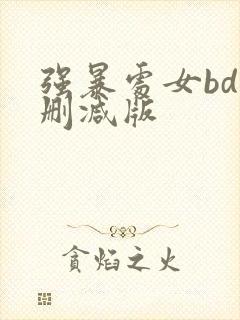 强暴處女bd
删减版
貪焰之火